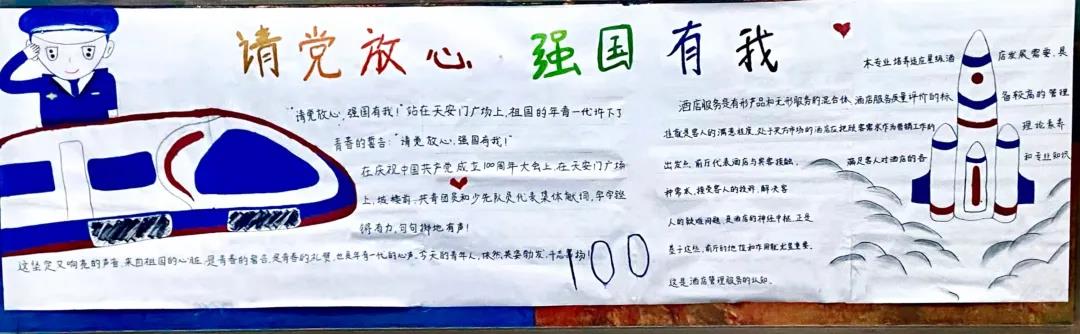 请党放心 强国有我
“请党放心,强国有我!”站在天安门广场上,祖国的年青一代许下了
青春的誓言:“请党放心,强国有我!”
在庆祝中国共产党成立100周年大会上,在天安门广场
上,城楼前,共青团员和少先队员代表集体献词,字字铿
锵有力,句句掷地有声!
这坚定又响亮的声音,来自祖国的心脏,是青春的誓言,是青春的礼赞,也是年青一代的心声。今天的青年人,依然英姿勃发,斗志昂扬!
100
酒店服务是有形产品和无形服务的混合体,酒店服务质量评价的标
准就是客人的满意程度,处于买方市场的酒店应把顾客需求作为营销工作的
出发点,前厅代表酒店与宾客接触,
满足客人对酒店的各
种需求,接受客人的投诉,解决客
人的疑难问题,是酒店的神经中枢,正是
基于这些,前厅的地位和作用就尤显重要。
这是酒店管理服务的认知。
本专业培养适应星级酒
店发展需要,具
备较高的管理
理论素养
和专业知识